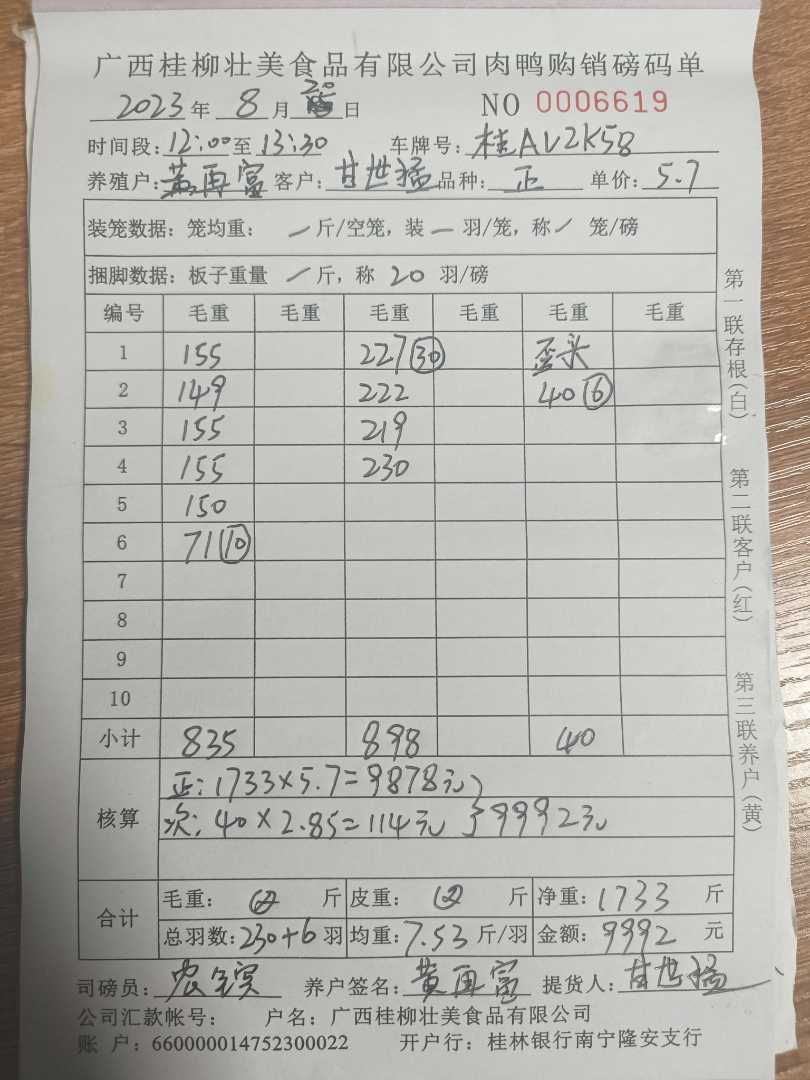 广西桂柳壮美食品有限公司肉鸭购销磅码单
2023年 8月 20日 NO 0006619
时间段:12:00至 13:30 车牌号:桂AV2K58
养殖户:黄再富 客户:甘世猛 品种:正 单价:5.7
装笼数据:笼均重: / 斤/空笼,装 — 羽/笼,称 / 笼/磅
捆脚数据:板子重量 / 斤,称 20 羽/磅
编号 毛重 毛重 毛重 毛重 毛重 毛重
1 155 227 30 歪头
2 149 222 40 6
3 155 219
4 155 230
5 150
6 71 10
7
8
9
10
小计 835 898 40
核算
正:1733×5.7=9878元
次:40×2.85=114元 } 9992元
合计
毛重: 斤 皮重: 斤 净重:1733 斤
总羽数:230+6 羽 均重:7.53 斤/羽 金额:9992 元
司磅员: 养户签名:黄再富 提货人:甘世猛
公司汇款帐号: 户名:广西桂柳壮美食品有限公司
账 户:660000014752300022 开户行:桂林银行南宁隆安支行
第一联存根(白)
第二联客户(红)
第三联养户(黄)